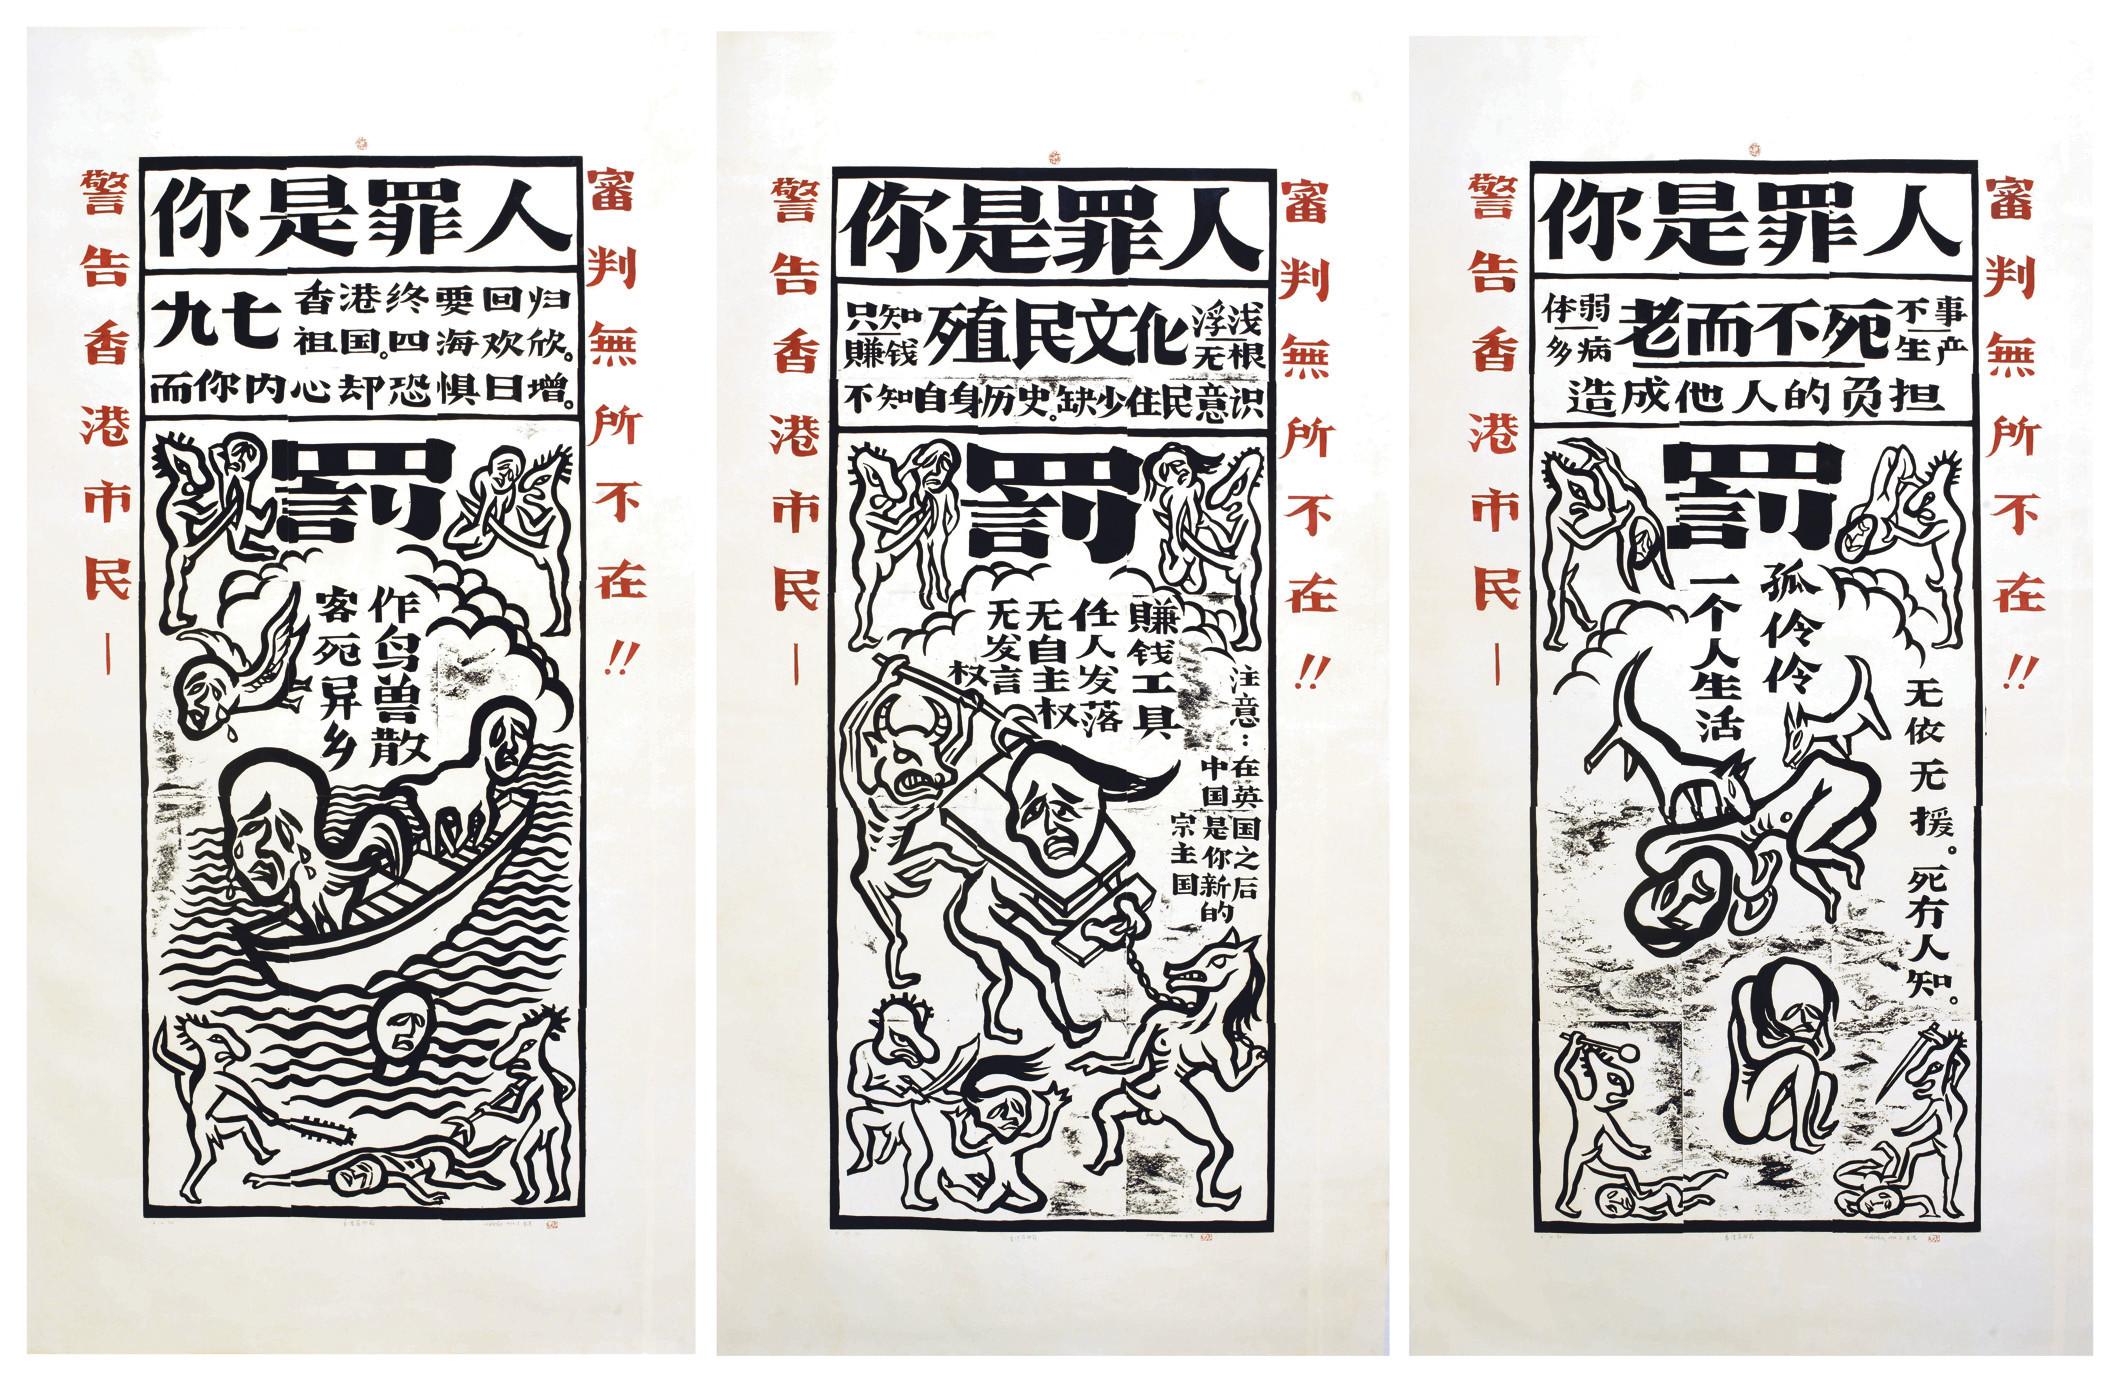 警告香港市民—
審判無所不在!!
你是罪人
九七
香港终要回归
祖国。四海欢欣。
而你内心却恐惧日增。
罚
作鸟兽散
客死异乡
警告香港市民—
審判無所不在!!
你是罪人
只知
賺钱
殖民文化
浮浅
无根
不知自身历史。缺少住民意识
罚
賺钱工具
任人发落
无自主权
无发言
权
注意:
在英国之后
中国是你新的
宗主国
警告香港市民—
審判無所不在!!
你是罪人
体弱
多病
老而不死
不事
生产
造成他人的负担
罚
孤伶伶
一个人生活
无依无援。死冇人知。